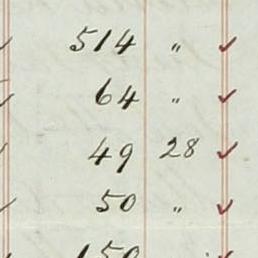 514 "
64 "
49 28
50 "
150